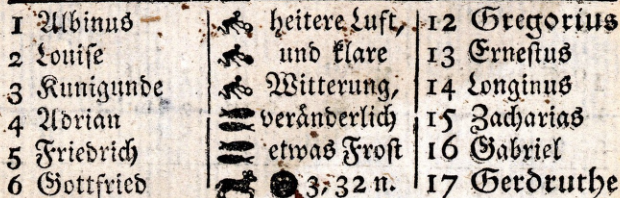 1 Albinus heitere Luft, 12 Gregorius
2 Louise und klare 13 Ernestus
3 Kunigunde Witterung, 14 Longinus
4 Adrian veränderlich 15 Zacharias
5 Friedrich etwas Frost 16 Gabriel
6 Gottfried 3, 32 n. 17 Gerdruthe